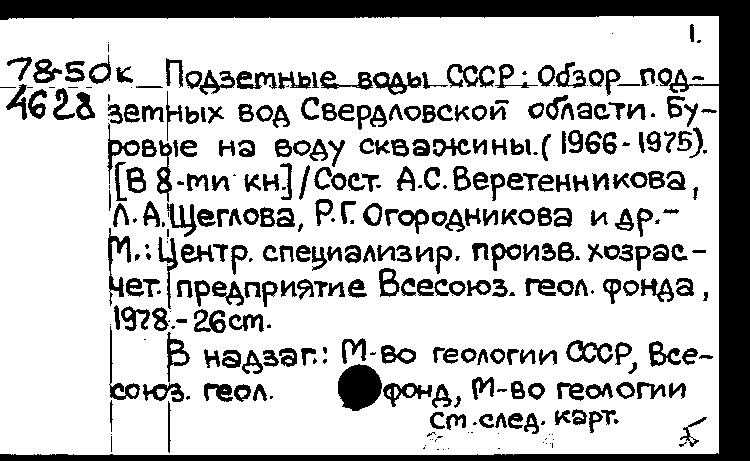 1.
78-50к Подземные воды СССР: Обзор под-
4628 земных вод Свердловской области. Бу-
ровые на воду скважины. (1966-1975).
[В 8-ми кн.]/Сост. А.С. Веретенникова,
Л.А. Щеглова, Р.Г. Огородникова и др.-
М.: Центр. специализир. произв. хозрас-
чет. предприятие Всесоюз. геол. фонда,
1978.-26см.
В надзаг.: М-во геологии СССР, Все-
союз. геол. фонд, М-во геологии
См. след. карт.